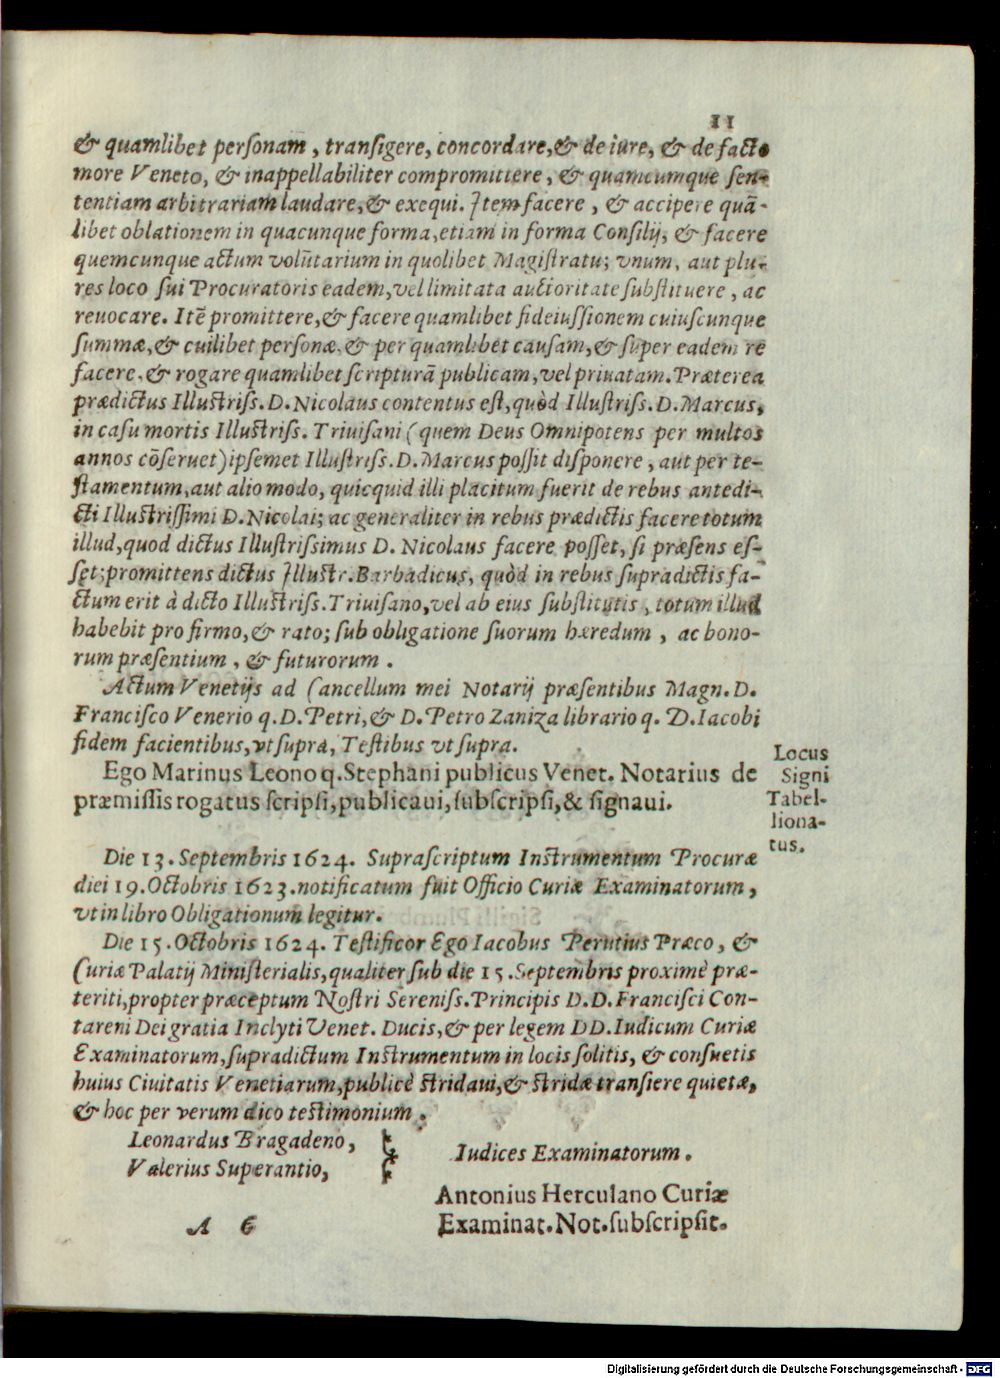 11
& quamlibet personam, transigere, concordare, & de iure, & de facto
more Veneto, & inappellabiliter compromittere, & quamcumque sen-
tentiam arbitrariam laudare, & exequi. Item facere, & accipere quã-
libet oblationem in quacunque forma, etiam in forma Consilij, & facere
quemcunque actum volũtarium in quolibet Magistratu; vnum, aut plu-
res loco sui Procuratoris eadem, vel limitata auctoritate substituere, ac
reuocare. Itẽ promittere, & facere quamlibet fideiussionem cuiuscunque
summæ, & cuilibet personæ, & per quamlibet causam, & super eadem re
facere, & rogare quamlibet scripturã publicam, vel priuatam. Præterea
prædictus Illustriss. D. Nicolaus contentus est, quòd Illustriss. D. Marcus,
in casu mortis Illustriss. Triuisani (quem Deus Omnipotens per multos
annos cõseruet) ipsemet Illustriss. D. Marcus possit disponere, aut per te-
stamentum, aut alio modo, quicquid illi placitum fuerit de rebus antedi-
cti Illustrissimi D. Nicolai; ac generaliter in rebus prædictis facere totum
illud, quod dictus Illustrissimus D. Nicolaus facere posset, si præsens es-
set; promittens dictus Illustr. Barbadicus, quòd in rebus supradictis fa-
ctum erit à dicto Illustriss. Triuisano, vel ab eius substitutis, totum illud
habebit pro firmo, & rato; sub obligatione suorum hæredum, ac bono-
rum præsentium, & futurorum.
Actum Venetijs ad Cancellum mei Notarij præsentibus Magn. D.
Francisco Venerio q. D. Petri, & D. Petro Zaniza librario q. D. Iacobi
fidem facientibus, vt supra, Testibus vt supra.
Ego Marinus Leono q. Stephani publicus Venet. Notarius de
præmissis rogatus scripsi, publicaui, subscripsi, & signaui.
Locus
Signi
Tabel-
liona-
tus.
Die 13. Septembris 1624. Suprascriptum Instrumentum Procuræ
diei 19. Octobris 1623. notificatum fuit Officio Curiæ Examinatorum,
vt in libro Obligationum legitur.
Die 15. Octobris 1624. Testificor Ego Iacobus Perutius Præco, &
Curiæ Palatij Ministerialis, qualiter sub die 15. Septembris proximè præ-
teriti, propter præceptum Nostri Sereniss. Principis D. D. Francisci Con-
tareni Dei gratia Inclyti Venet. Ducis, & per legem DD. Iudicum Curiæ
Examinatorum, supradictum Instrumentum in locis solitis, & consuetis
huius Ciuitatis Venetiarum, publicè stridaui, & stridæ transiere quietæ,
& hoc per verum dico testimonium.
Leonardus Bragadeno,
Valerius Superantio,
Iudices Examinatorum.
Antonius Herculano Curiæ
Examinat. Not. subscripsit.
A 6
Digitalisierung gefördert durch die Deutsche Forschungsgemeinschaft - DFG